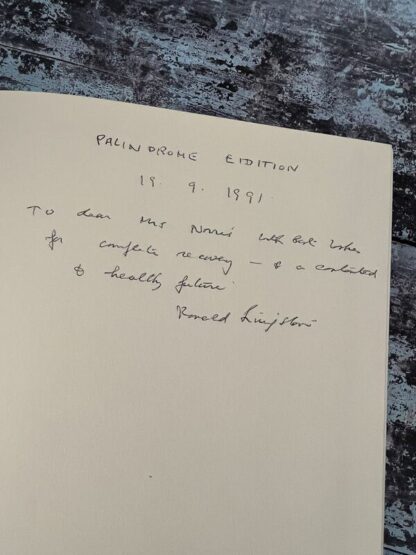 PALINDROME EIDITION
19. 9. 1991.
To dear Mrs Norris with best wishes
for complete recovery – & a contented
& healthy future
Ronald Livingstone